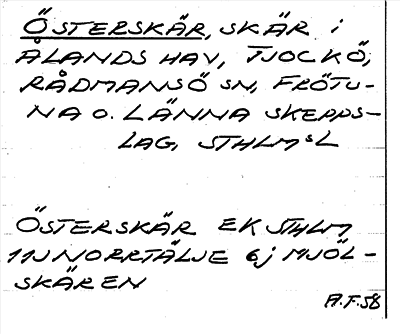 ÖSTERSKÄR, SKÄR i
ÅLANDS HAV, TJOCKÖ,
RÅDMANSÖ SN, FRÖTU-
NA O. LÄNNA SKEPPS-
LAG, STHLMSL
ÖSTERSKÄR EK STHLM
11J NORRTÄLJE 6j MJÖL-
SKÄREN
A.F.58